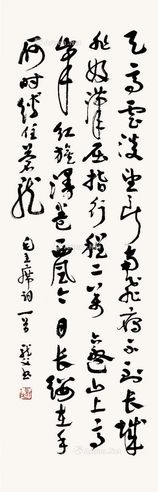 天高雲淡望断南飛雁不到長城
非好漢屈指行程二万六盤山上高
峰红旗漫卷西風今日長纓在手
何时缚住蒼龍
毛主席词一首